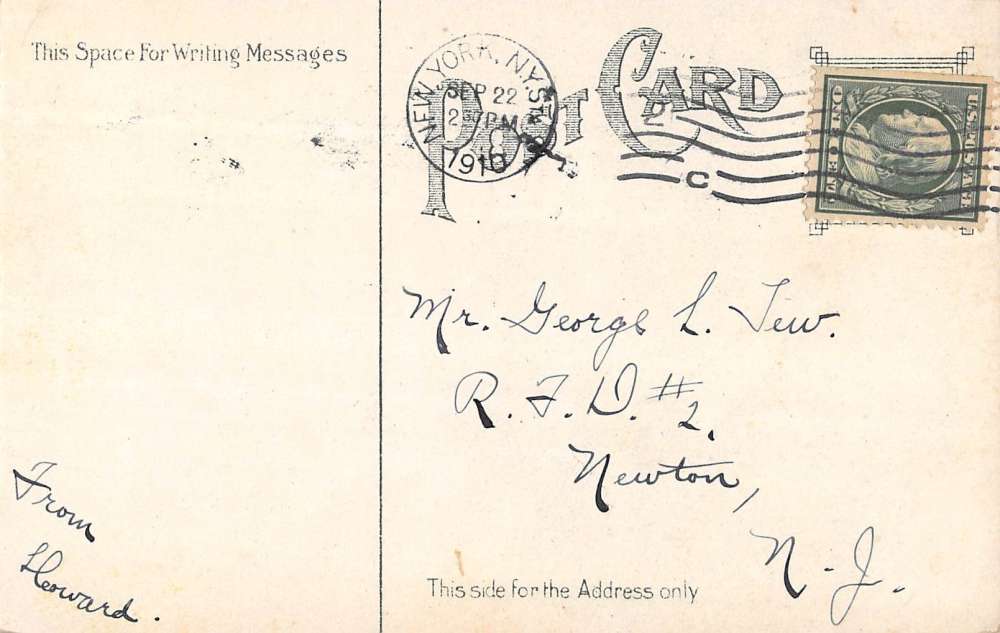 This Space For Writing Messages
POST CARD
NEW YORK, N.Y. STA.
SEP 22
2 30 PM
1910
C
U.S. POSTAGE
ONE CENT
Mr. George L. Tew.
R. F. D. #2.
Newton,
N. J.
From
Howard.
This side for the Address only